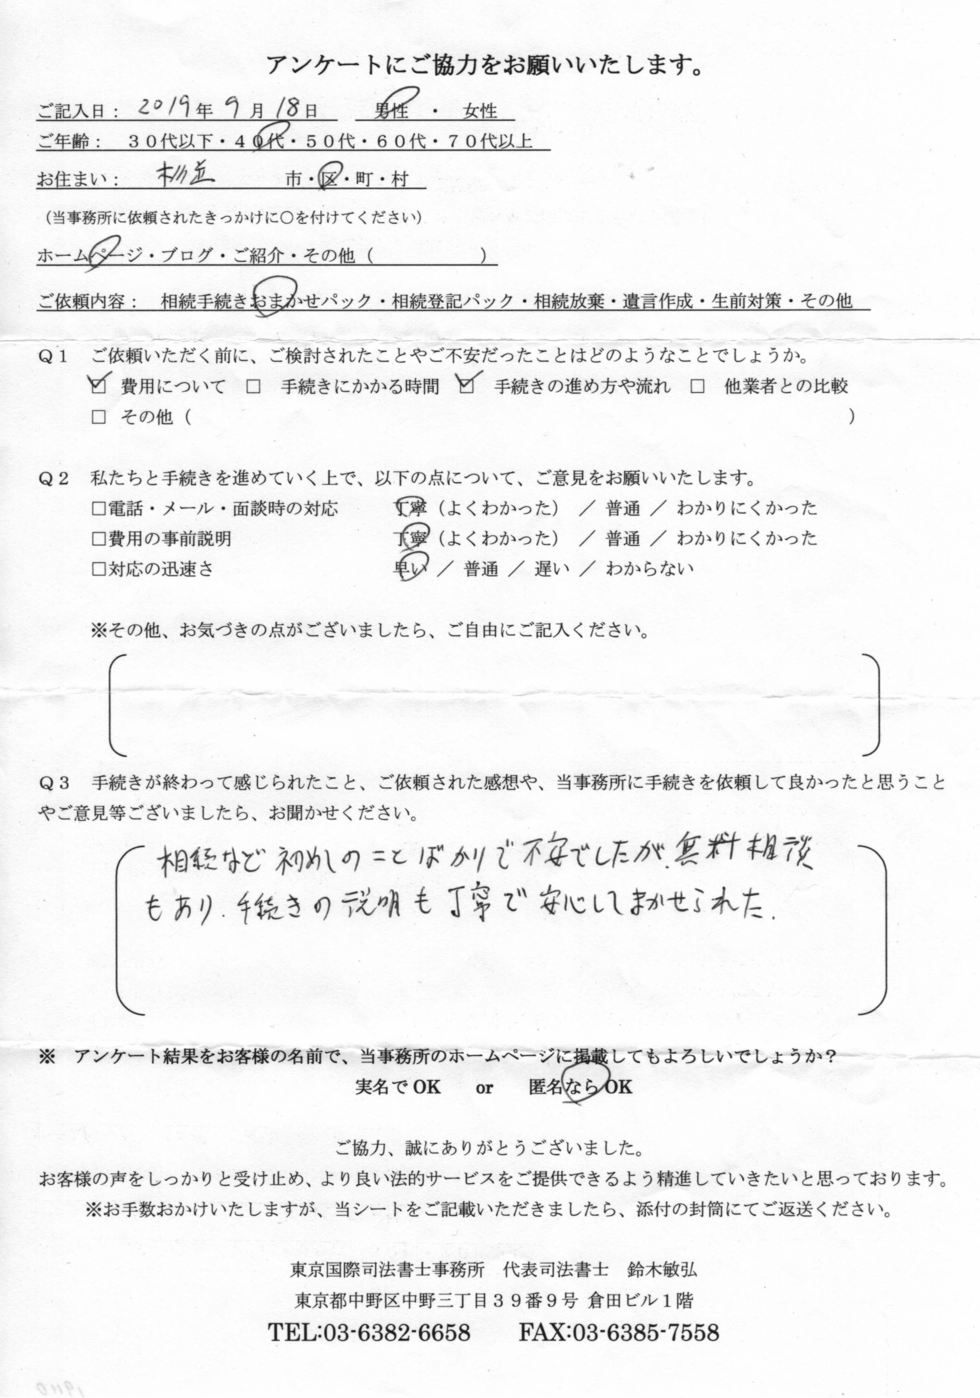 アンケートにご協力をお願いいたします。
ご記入日： 2019年 9月 18日 男性 ・ 女性
ご年齢： ３０代以下・４０代・５０代・６０代・７０代以上
お住まい： 杉並 市・区・町・村
（当事務所に依頼されたきっかけに○を付けてください）
ホームページ・ブログ・ご紹介・その他（ ）
ご依頼内容： 相続手続きおまかせパック・相続登記パック・相続放棄・遺言作成・生前対策・その他
Ｑ１ ご依頼いただく前に、ご検討されたことやご不安だったことはどのようなことでしょうか。
☑ 費用について □ 手続きにかかる時間 ☑ 手続きの進め方や流れ □ 他業者との比較
□ その他（ ）
Ｑ２ 私たちと手続きを進めていく上で、以下の点について、ご意見をお願いいたします。
□電話・メール・面談時の対応 丁寧（よくわかった） ／ 普通 ／ わかりにくかった
□費用の事前説明 丁寧（よくわかった） ／ 普通 ／ わかりにくかった
□対応の迅速さ 早い ／ 普通 ／ 遅い ／ わからない
※その他、お気づきの点がございましたら、ご自由にご記入ください。
Ｑ３ 手続きが終わって感じられたこと、ご依頼された感想や、当事務所に手続きを依頼して良かったと思うこと
やご意見等ございましたら、お聞かせください。
相続など初めしのことばかりで不安でしたが、無料相談
もあり、手続きの説明も丁寧で安心してまかせられた。
※ アンケート結果をお客様の名前で、当事務所のホームページに掲載してもよろしいでしょうか？
実名でOK or 匿名ならOK
ご協力、誠にありがとうございました。
お客様の声をしっかりと受け止め、より良い法的サービスをご提供できるよう精進していきたいと思っております。
※お手数おかけいたしますが、当シートをご記載いただきましたら、添付の封筒にてご返送ください。
東京国際司法書士事務所 代表司法書士 鈴木敏弘
東京都中野区中野三丁目３９番９号 倉田ビル１階
TEL:03-6382-6658 FAX:03-6385-7558